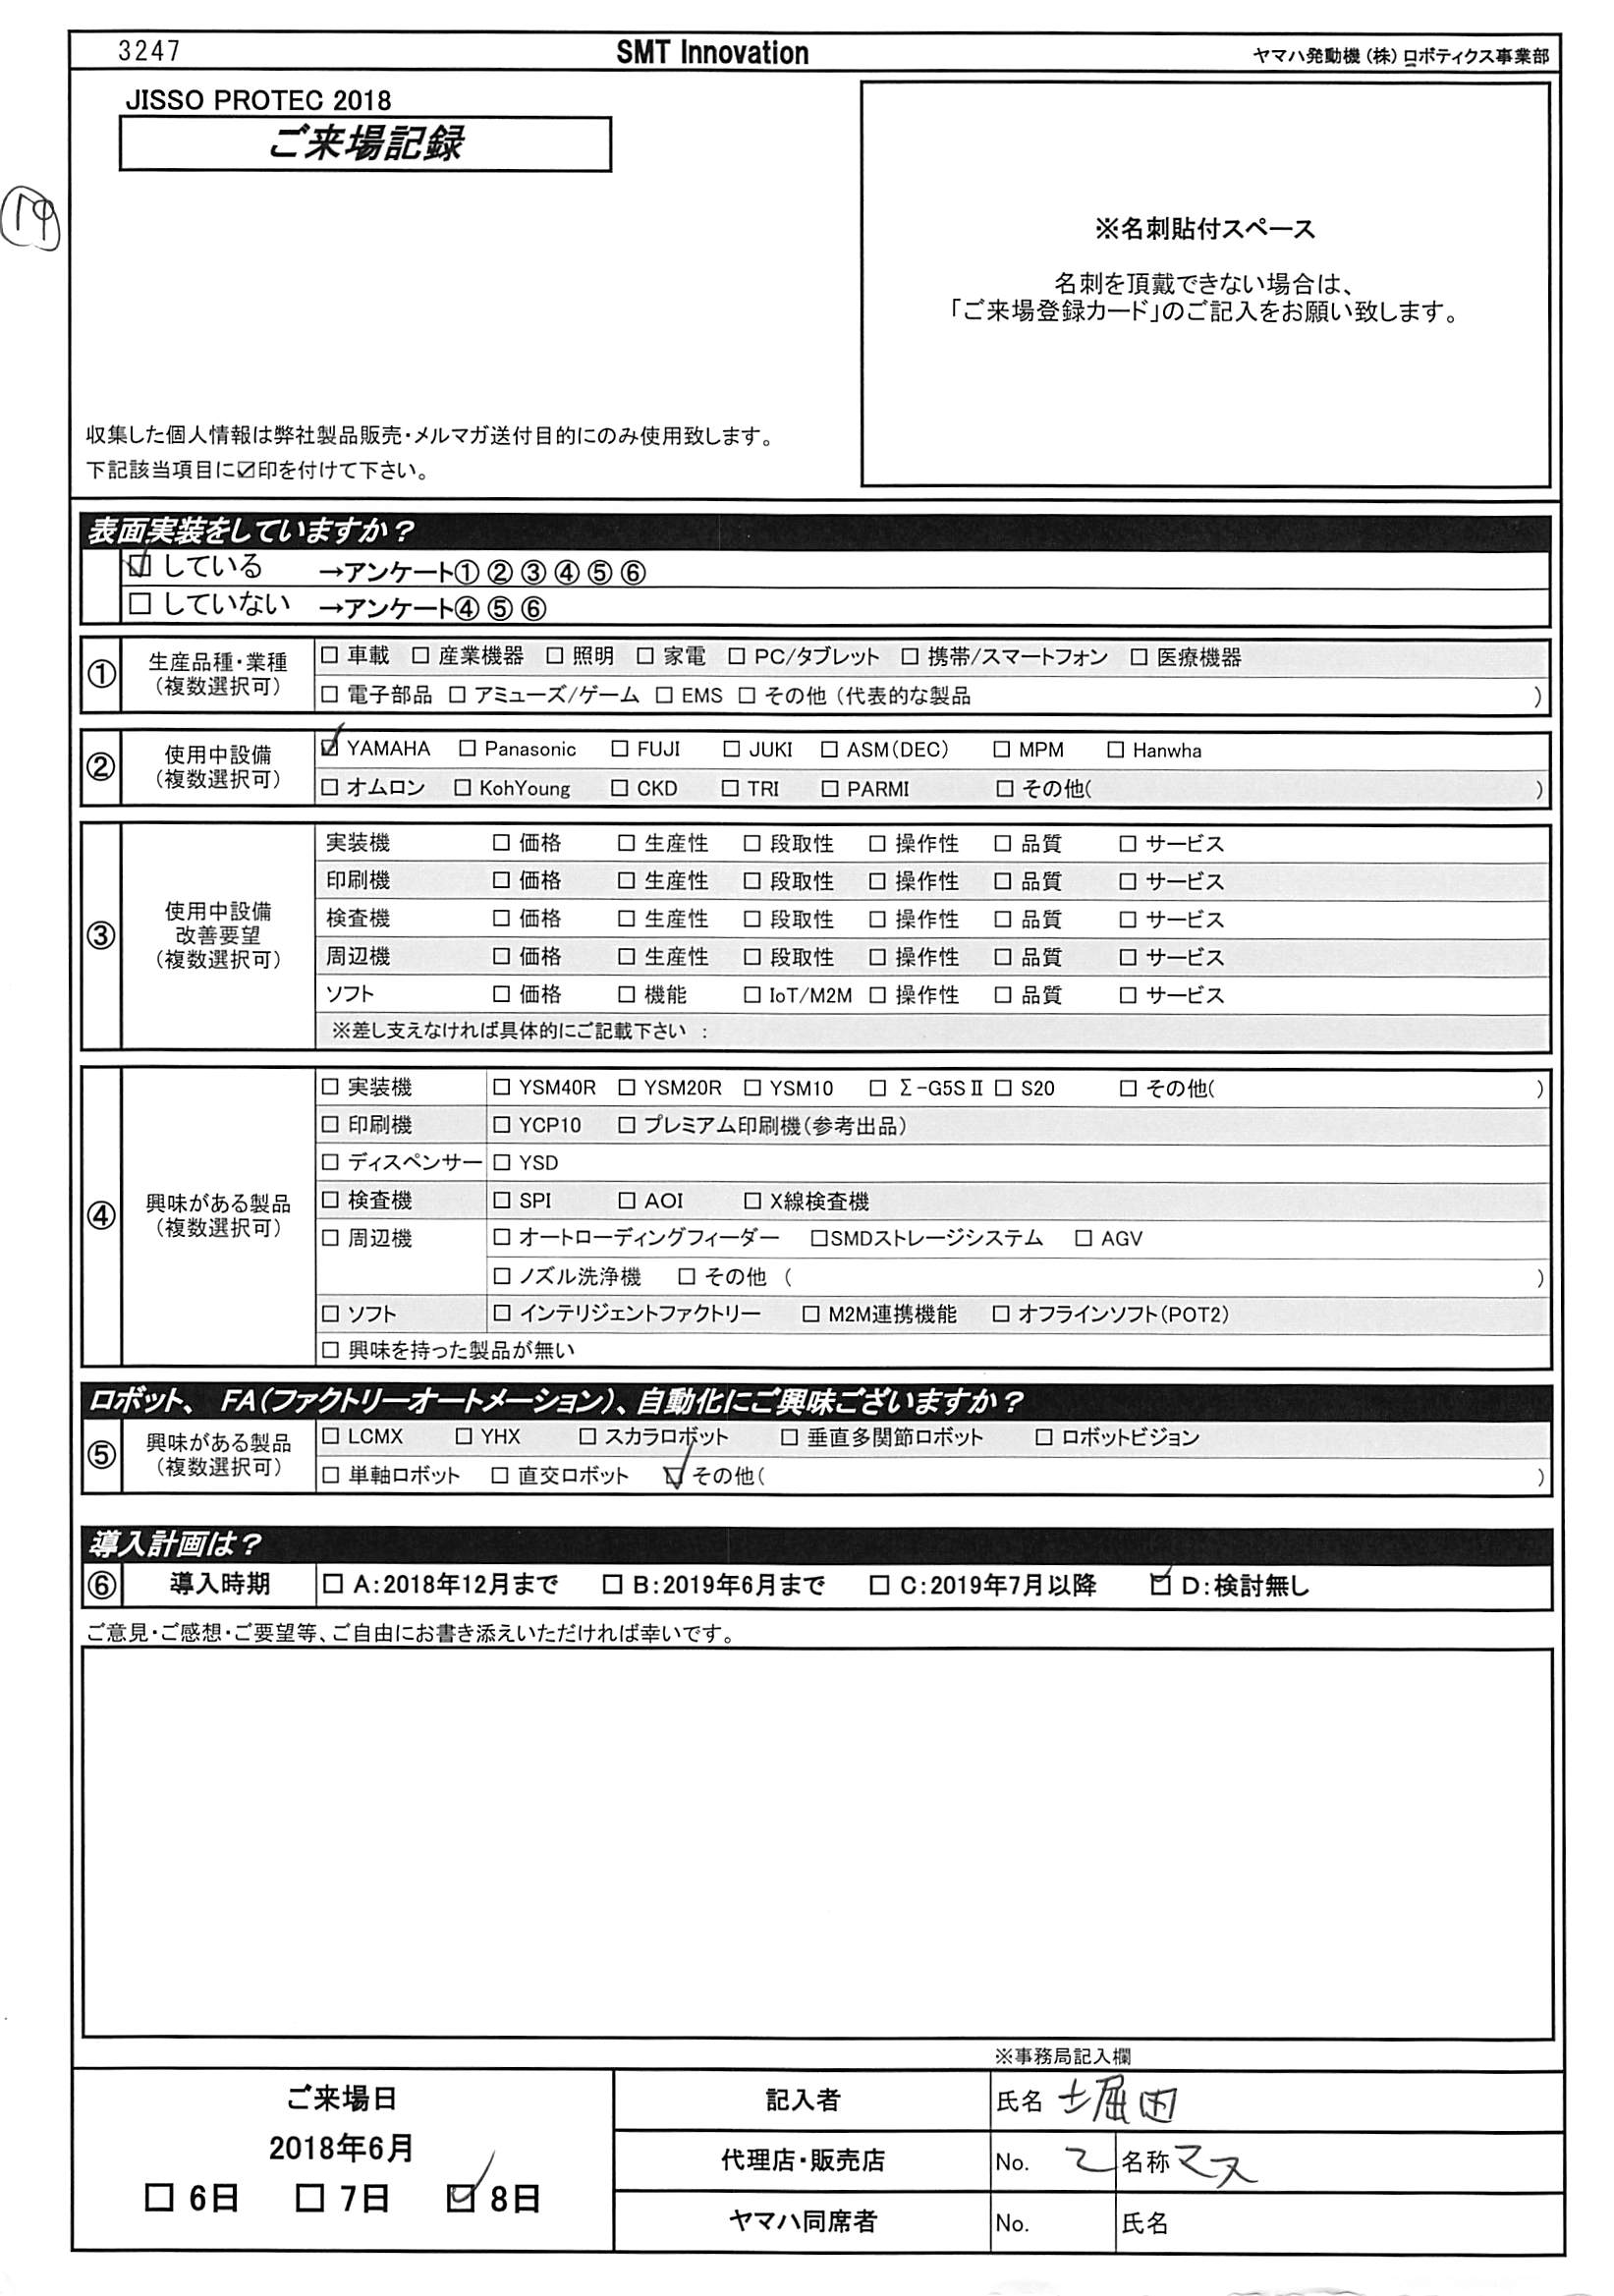 3247 SMT Innovation ヤマハ発動機(株)ロボティクス事業部
JISSO PROTEC 2018
ご来場記録
19
※名刺貼付スペース
名刺を頂戴できない場合は、
「ご来場登録カード」のご記入をお願い致します。
収集した個人情報は弊社製品販売・メルマガ送付目的にのみ使用致します。
下記該当項目に☑印を付けて下さい。
表面実装をしていますか？
☑ している →アンケート① ② ③ ④ ⑤ ⑥
□ していない →アンケート④ ⑤ ⑥
① 生産品種・業種（複数選択可）
□ 車載 □ 産業機器 □ 照明 □ 家電 □ PC/タブレット □ 携帯/スマートフォン □ 医療機器
□ 電子部品 □ アミューズ/ゲーム □ EMS □ その他（代表的な製品 ）
② 使用中設備（複数選択可）
☑ YAMAHA □ Panasonic □ FUJI □ JUKI □ ASM(DEC) □ MPM □ Hanwha
□ オムロン □ KohYoung □ CKD □ TRI □ PARMI □ その他( )
③ 使用中設備改善要望（複数選択可）
実装機 □ 価格 □ 生産性 □ 段取性 □ 操作性 □ 品質 □ サービス
印刷機 □ 価格 □ 生産性 □ 段取性 □ 操作性 □ 品質 □ サービス
検査機 □ 価格 □ 生産性 □ 段取性 □ 操作性 □ 品質 □ サービス
周辺機 □ 価格 □ 生産性 □ 段取性 □ 操作性 □ 品質 □ サービス
ソフト □ 価格 □ 機能 □ IoT/M2M □ 操作性 □ 品質 □ サービス
※差し支えなければ具体的にご記載下さい ：
④ 興味がある製品（複数選択可）
□ 実装機 □ YSM40R □ YSM20R □ YSM10 □ Σ-G5SⅡ □ S20 □ その他( )
□ 印刷機 □ YCP10 □ プレミアム印刷機(参考出品)
□ ディスペンサー □ YSD
□ 検査機 □ SPI □ AOI □ X線検査機
□ 周辺機 □ オートローディングフィーダー □SMDストレージシステム □ AGV
□ ノズル洗浄機 □ その他 ( )
□ ソフト □ インテリジェントファクトリー □ M2M連携機能 □ オフラインソフト(POT2)
□ 興味を持った製品が無い
ロボット、 FA(ファクトリーオートメーション)、自動化にご興味ございますか？
⑤ 興味がある製品（複数選択可）
□ LCMX □ YHX □ スカラロボット □ 垂直多関節ロボット □ ロボットビジョン
□ 単軸ロボット □ 直交ロボット ☑ その他( )
導入計画は？
⑥ 導入時期 □ A:2018年12月まで □ B:2019年6月まで □ C:2019年7月以降 ☑ D:検討無し
ご意見・ご感想・ご要望等、ご自由にお書き添えいただければ幸いです。
※事務局記入欄
ご来場日
2018年6月
□ 6日 □ 7日 ☑ 8日
記入者 氏名 堀田
代理店・販売店 No. 2 名称 マス
ヤマハ同席者 No. 氏名